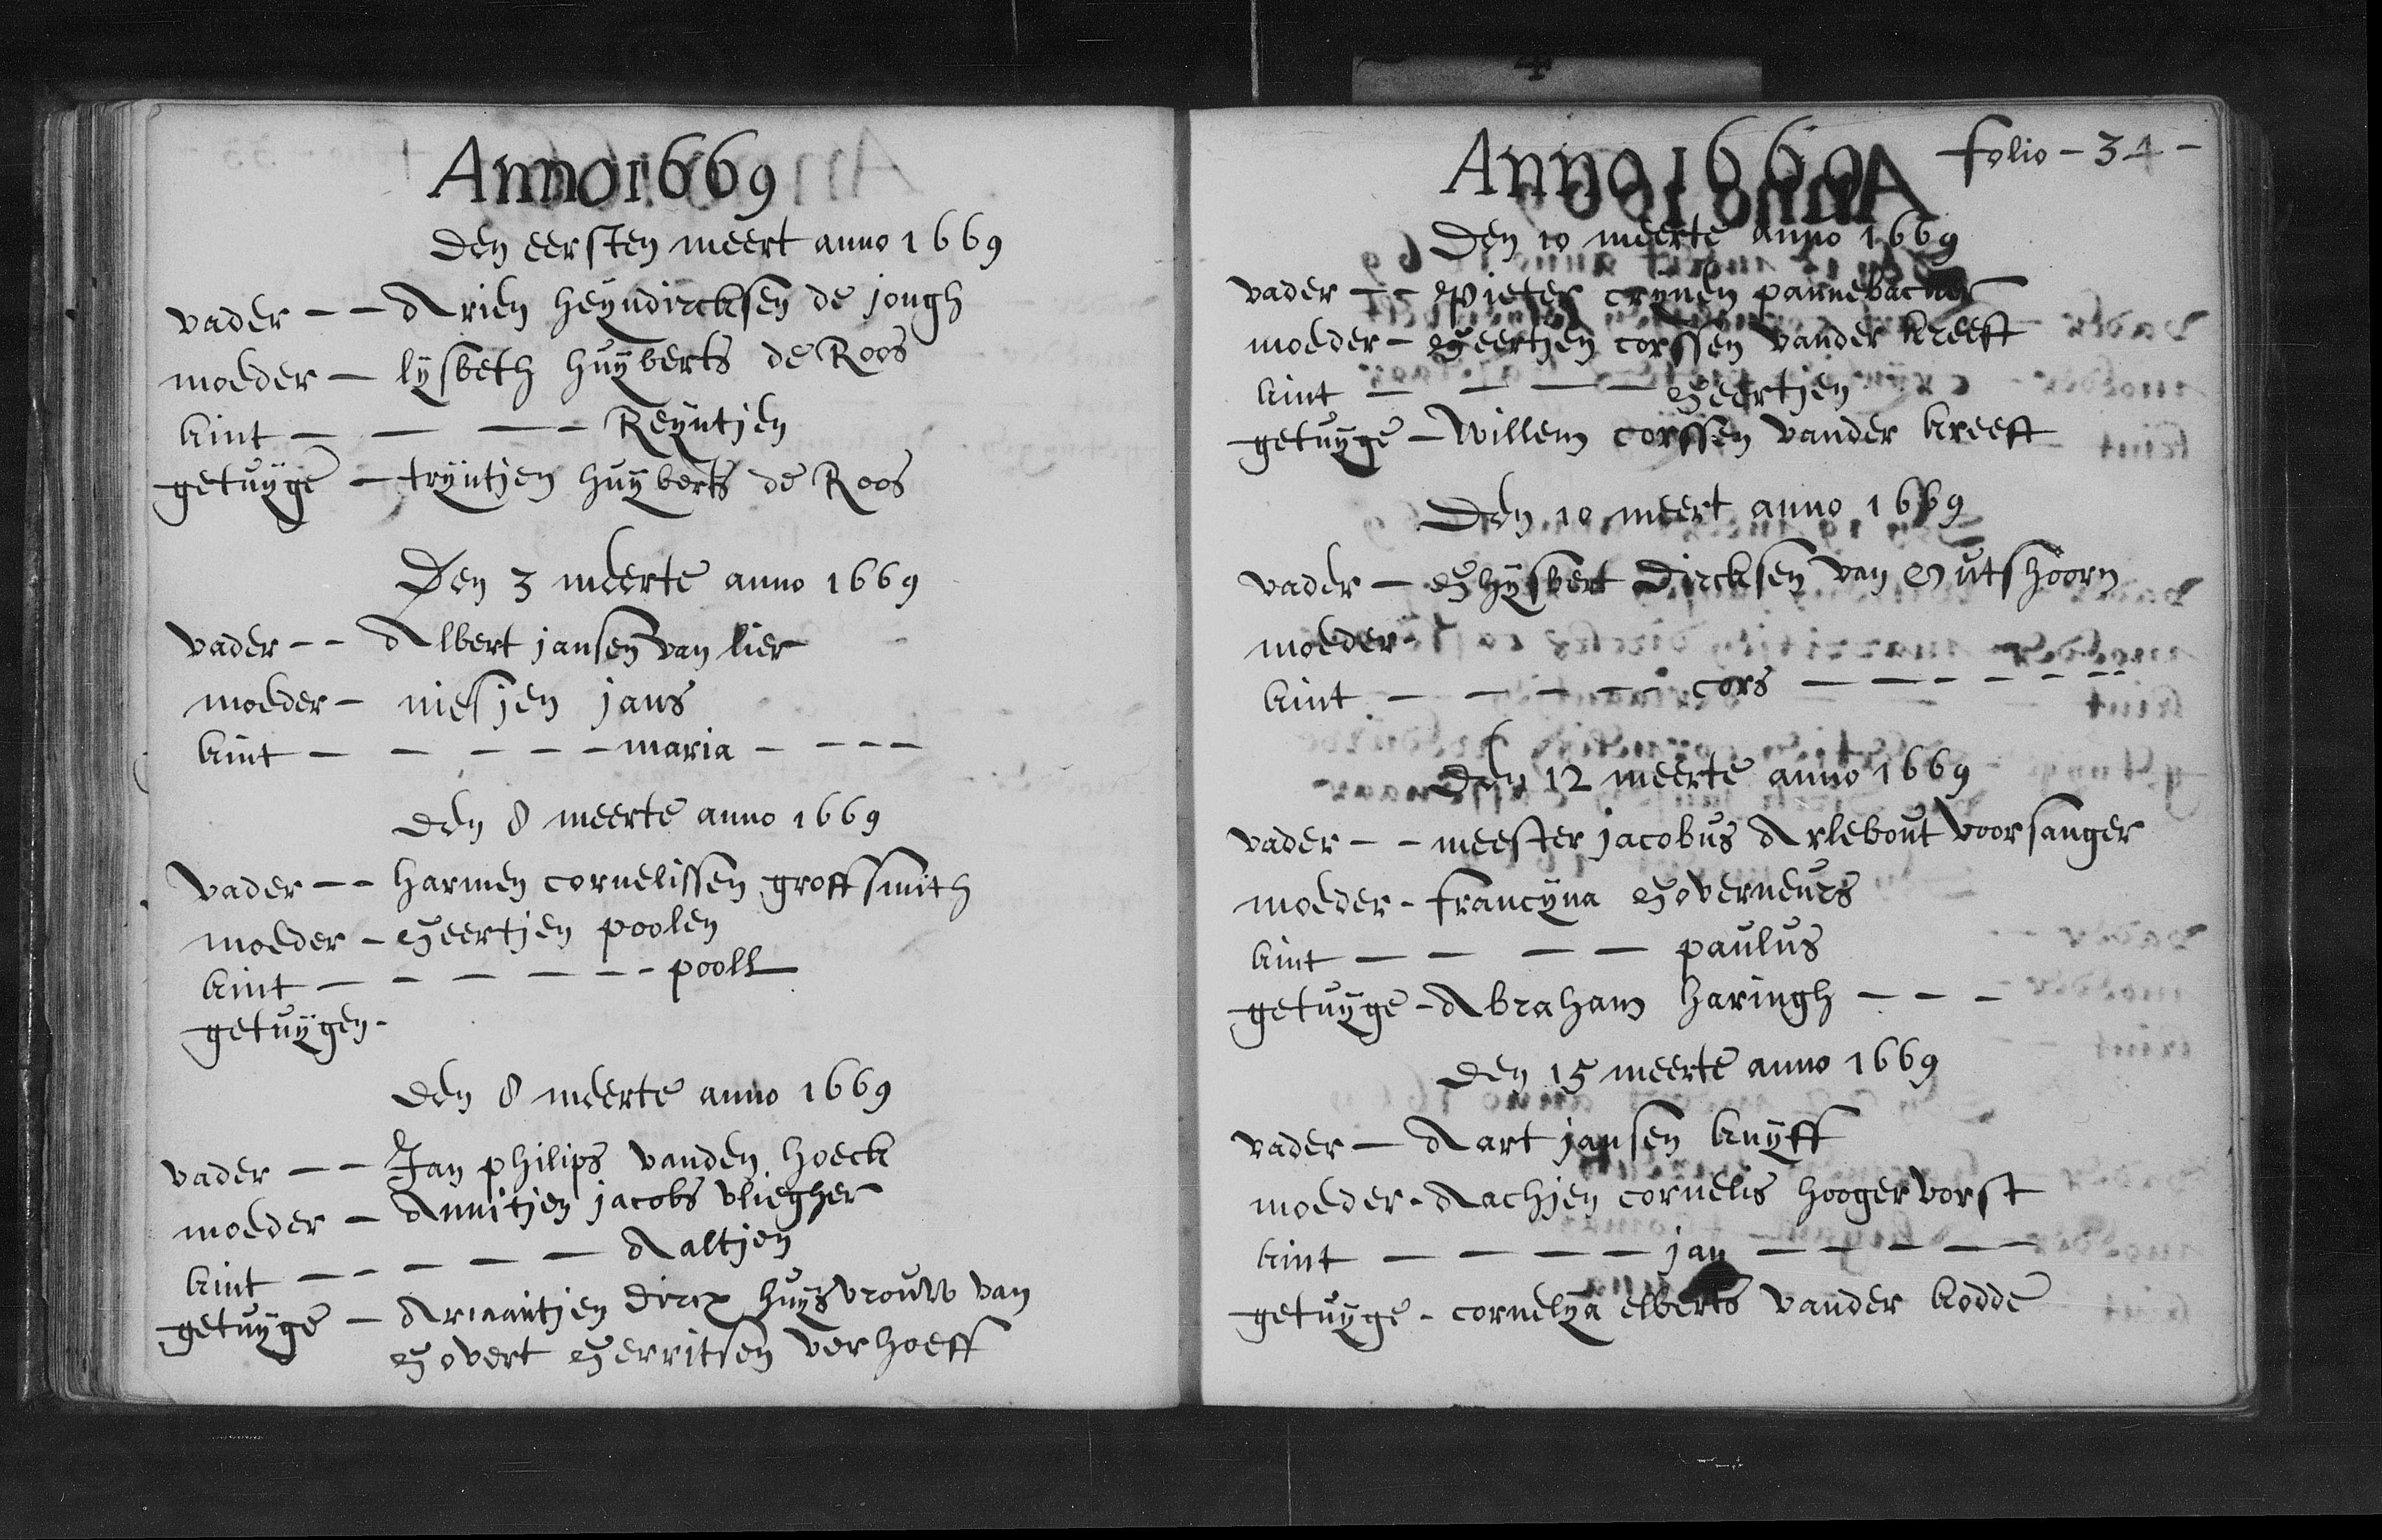 Anno 1669
Den eersten meert anno 1669
vader - - Arien heyndircksen de jongh
moeder - lysbeth huyberts de Roos
kint - - - - Reyntjen
getuyge - tryntjen huyberts de Roos
Den 3 meerte anno 1669
vader - - Albert jansen van lier
moeder - niesjen jans
kint - - - - - maria - - - -
den 8 meerte anno 1669
vader - - harmen cornelissen groffsmith
moeder - Geertjen poolen
kint - - - - - - pooll
getuygen -
den 8 meerte anno 1669
vader - - Jan philips vanden hoeck
moeder - Annitjen jacobs vliegher
kint - - - - - Aaltjen
getuyge - Ariaantjen dircx huysvrouw van
Govert Gerritsen verhoeff
Anno 1669 folio - 34 -
Den 10 meerte anno 1669
vader - - Pieter crynen pannebacker
moeder - Geertjen corssen vander kreeft
kint - - - - Geertjen
getuyge - Willem corssen vander kreeft
Den 10 meert anno 1669
vader - Ghysbert Dircksen van Outshoorn
moeder -
kint - - - - - cors - - - - - -
den 12 meerte anno 1669
vader - - meester jacobus Arlebout voorsanger
moeder - francyna Governeurs
kint - - - - paulus
getuyge - Abraham haringh - - -
den 15 meerte anno 1669
vader - Aart jansen kuyff
moeder - Aachjen cornelis hoogervorst
kint - - - - jan - - - - -
getuyge - cornelya elberts vander kodde
4